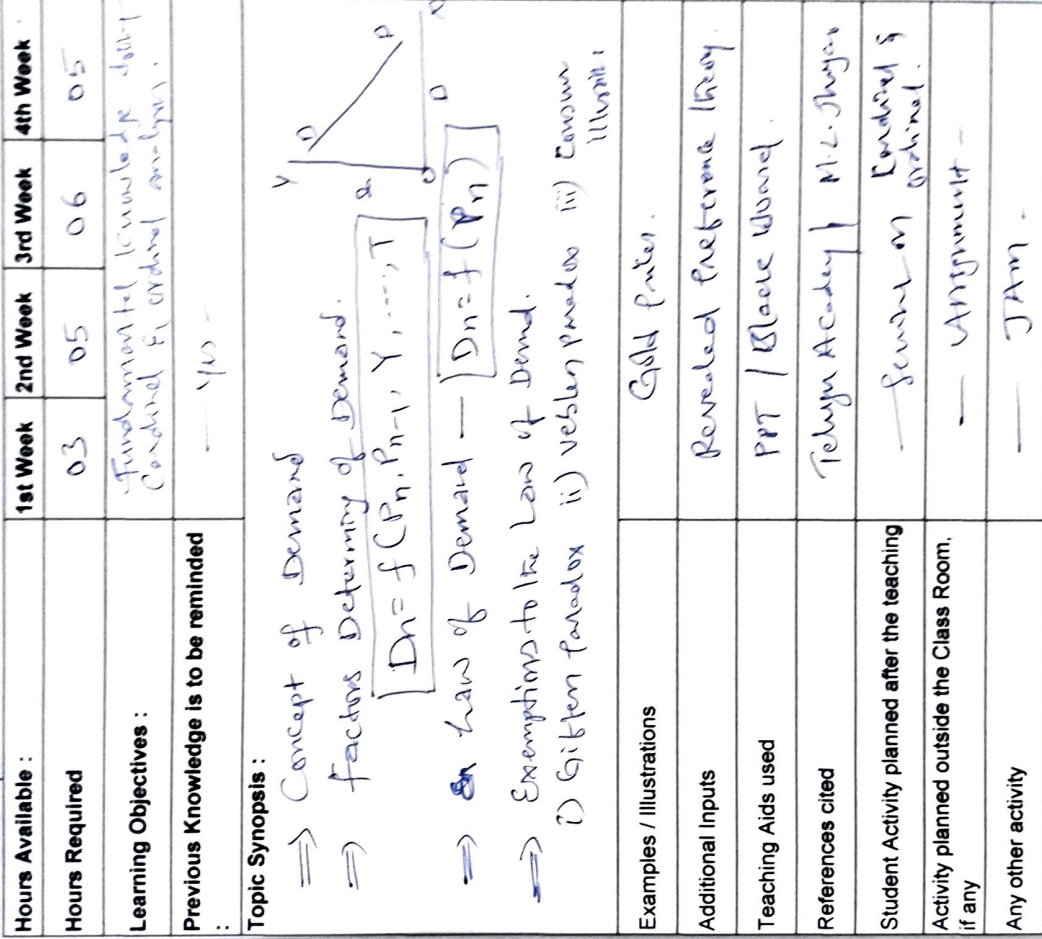 Hours Available : 1st Week 2nd Week 3rd Week 4th Week
Hours Required 03 05 06 05
Learning Objectives : Fundamental knowledge
Cardinal & ordinal analysis.
Previous Knowledge is to be reminded
: — Yes —
Topic Synopsis :
⇒ Concept of Demand
⇒ factors Determing of Demand.
Dn = f (Pn, Pn-1, Y, ----, T
Y D D
O D
⇒ Law of Demand — Dn = f (Pn)
⇒ Exemptions to the Law of Demd.
i) Giffen Paradox ii) veblen paradox iii) Consumer
Examples / Illustrations Gold Prices.
Additional Inputs Revealed Preference theory.
Teaching Aids used PPT / Black Board.
References cited Telugu Academy M.L.
Student Activity planned after the teaching — on Cardinal &
ordinal.
Activity planned outside the Class Room,
if any — Assignment —
Any other activity — JAM -